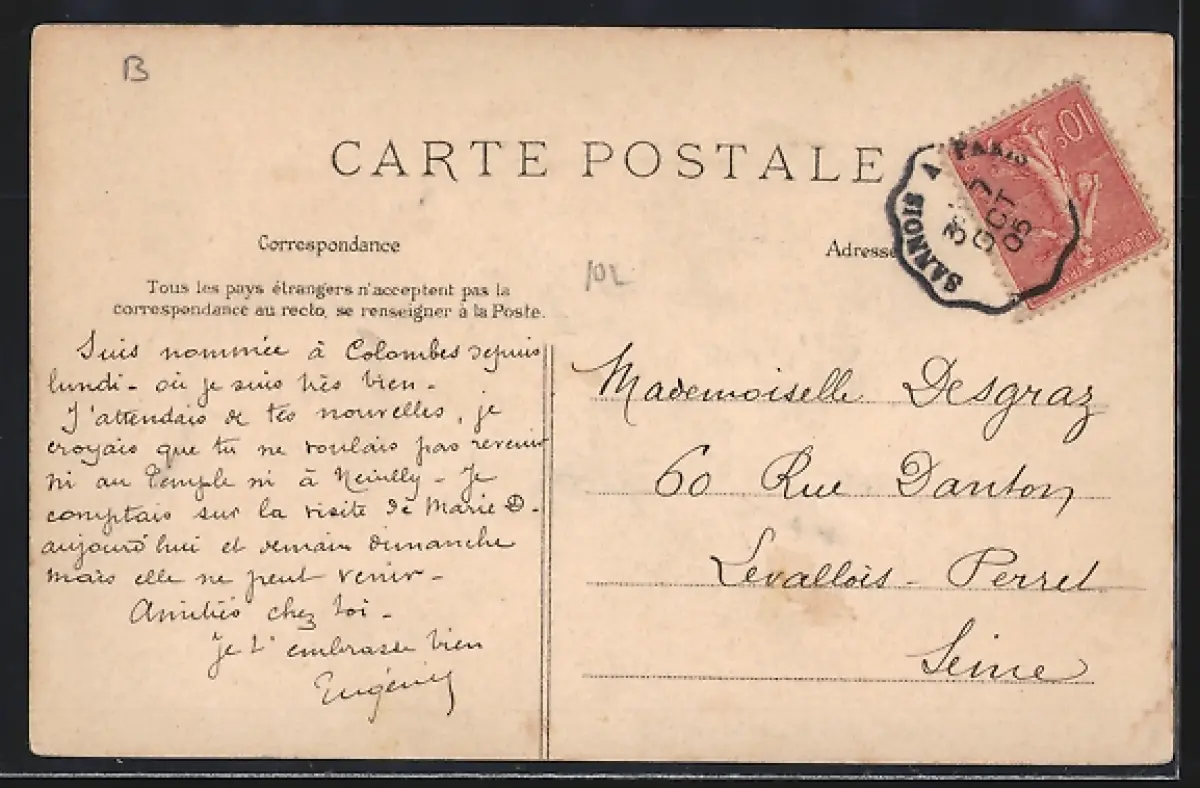 B
CARTE POSTALE
Correspondance
Adresse
Tous les pays étrangers n'acceptent pas la
correspondance au recto, se renseigner à la Poste.
102
SANNOIS A PARIS
OCT
05
10c
Suis nommée à Colombes depuis
lundi - où je suis très bien -
J'attendais de tes nouvelles, je
croyais que tu ne voulais pas revenir
ni au Temple ni à Neuilly - Je
comptais sur la visite de Marie D.
aujourd'hui et demain dimanche
mais elle ne peut venir -
Amitiés chez toi -
je t'embrasse bien
Eugénie
Mademoiselle Desgraz
60 Rue Danton
Levallois - Perret
Seine